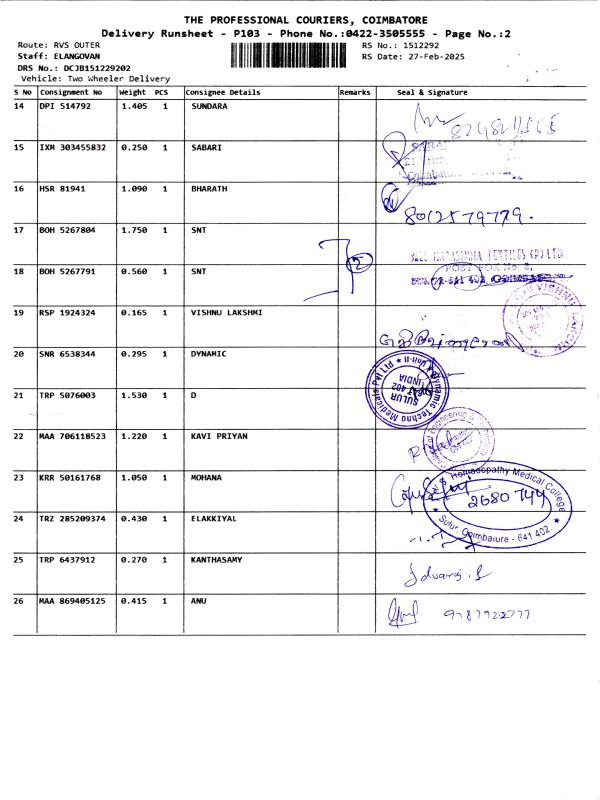 THE PROFESSIONAL COURIERS, COIMBATORE
Delivery Runsheet - P103 - Phone No.:0422-3505555 - Page No.:2
Route: RVS OUTER
RS No.: 1512292
Staff: ELANGOVAN
RS Date: 27-Feb-2025
DRS No.: DCJB151229202
Vehicle: Two Wheeler Delivery
S No Consignment No Weight PCS Consignee Details Remarks Seal & Signature
14 DPI 514792 1.405 1 SUNDARA
15 IXM 303455832 0.250 1 SABARI
16 HSR 81941 1.090 1 BHARATH
8012579779.
17 BOH 5267804 1.750 1 SNT
2
18 BOH 5267791 0.560 1 SNT
POST BOX No. 2,
19 RSP 1924324 0.165 1 VISHNU LAKSHMI
20 SNR 6538344 0.295 1 DYNAMIC
Dynamic Techno Medicals Pvt Ltd ★ Unit-II ★
SULUR
INDIA
21 TRP 5076003 1.530 1 D
22 MAA 706118523 1.220 1 KAVI PRIYAN
23 KRR 50161768 1.050 1 MOHANA
Homoeopathy Medical College
2680744
Sulur, Coimbatore - 641 402.
24 TRZ 285209374 0.430 1 ELAKKIYAL
25 TRP 6437912 0.270 1 KANTHASAMY
26 MAA 869405125 0.415 1 ANU
9787922777